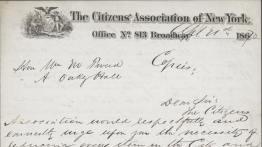 The Citizens' Association of New York,
Office No 813 Broadway,
186
Hon Wm M
A Oakey Hall
Copies
Dear Sir
The Citizens
Association would respectfully and
earnestly urge upon you the necessity of
in the City and